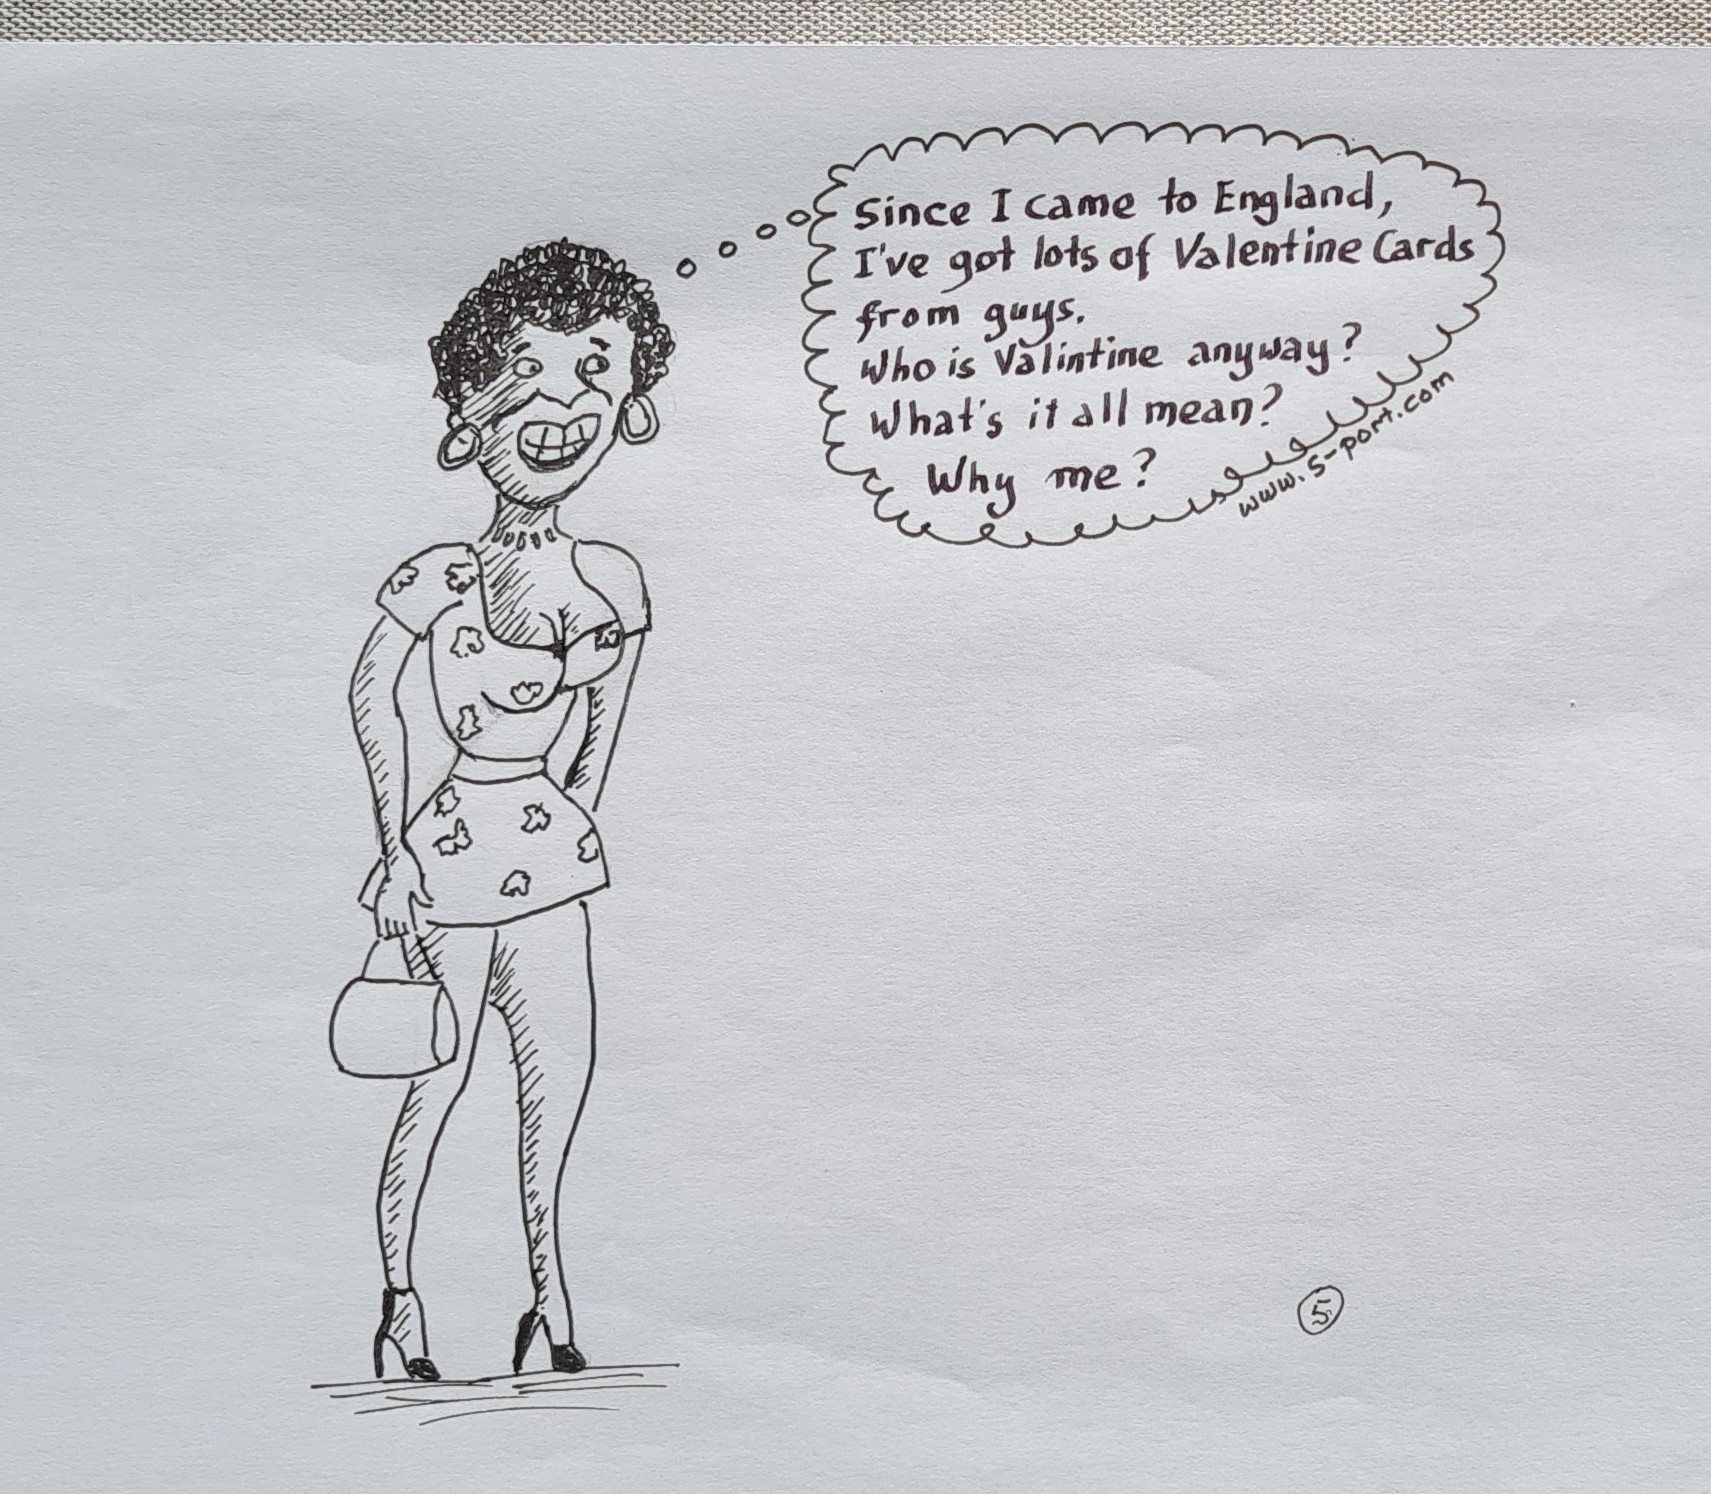 Since I came to England,
I've got lots of Valentine Cards
from guys.
Who is Valintine anyway?
What's it all mean?
Why me?
www.5-port.com
5